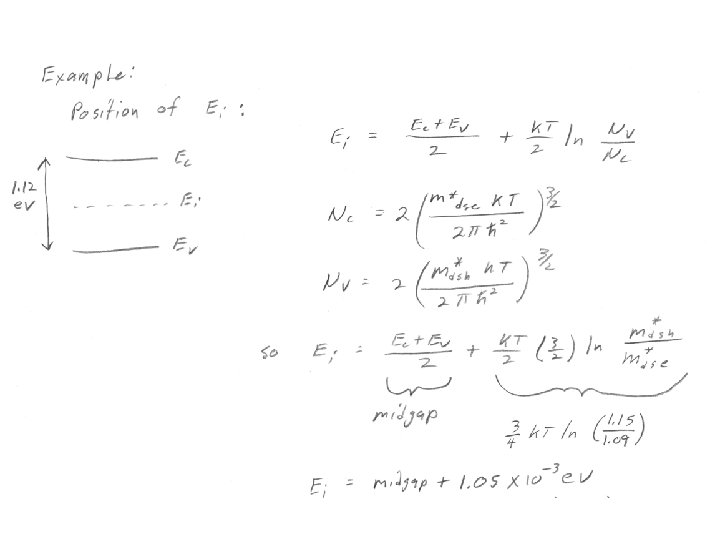 Example:
Position of Ei :
Ec
1.12
ev
Ei
Ev
Ei = (Ec + Ev)/2 + (KT/2) ln (Nv/Nc)
Nc = 2 (m*dse KT / 2πħ²)^3/2
Nv = 2 (m*dsh KT / 2πħ²)^3/2
so Ei = (Ec + Ev)/2 + (KT/2) (3/2) ln (m*dsh/m*dse)
midgap
3/4 KT ln (1.15/1.09)
Ei = midgap + 1.05 × 10^-3 ev